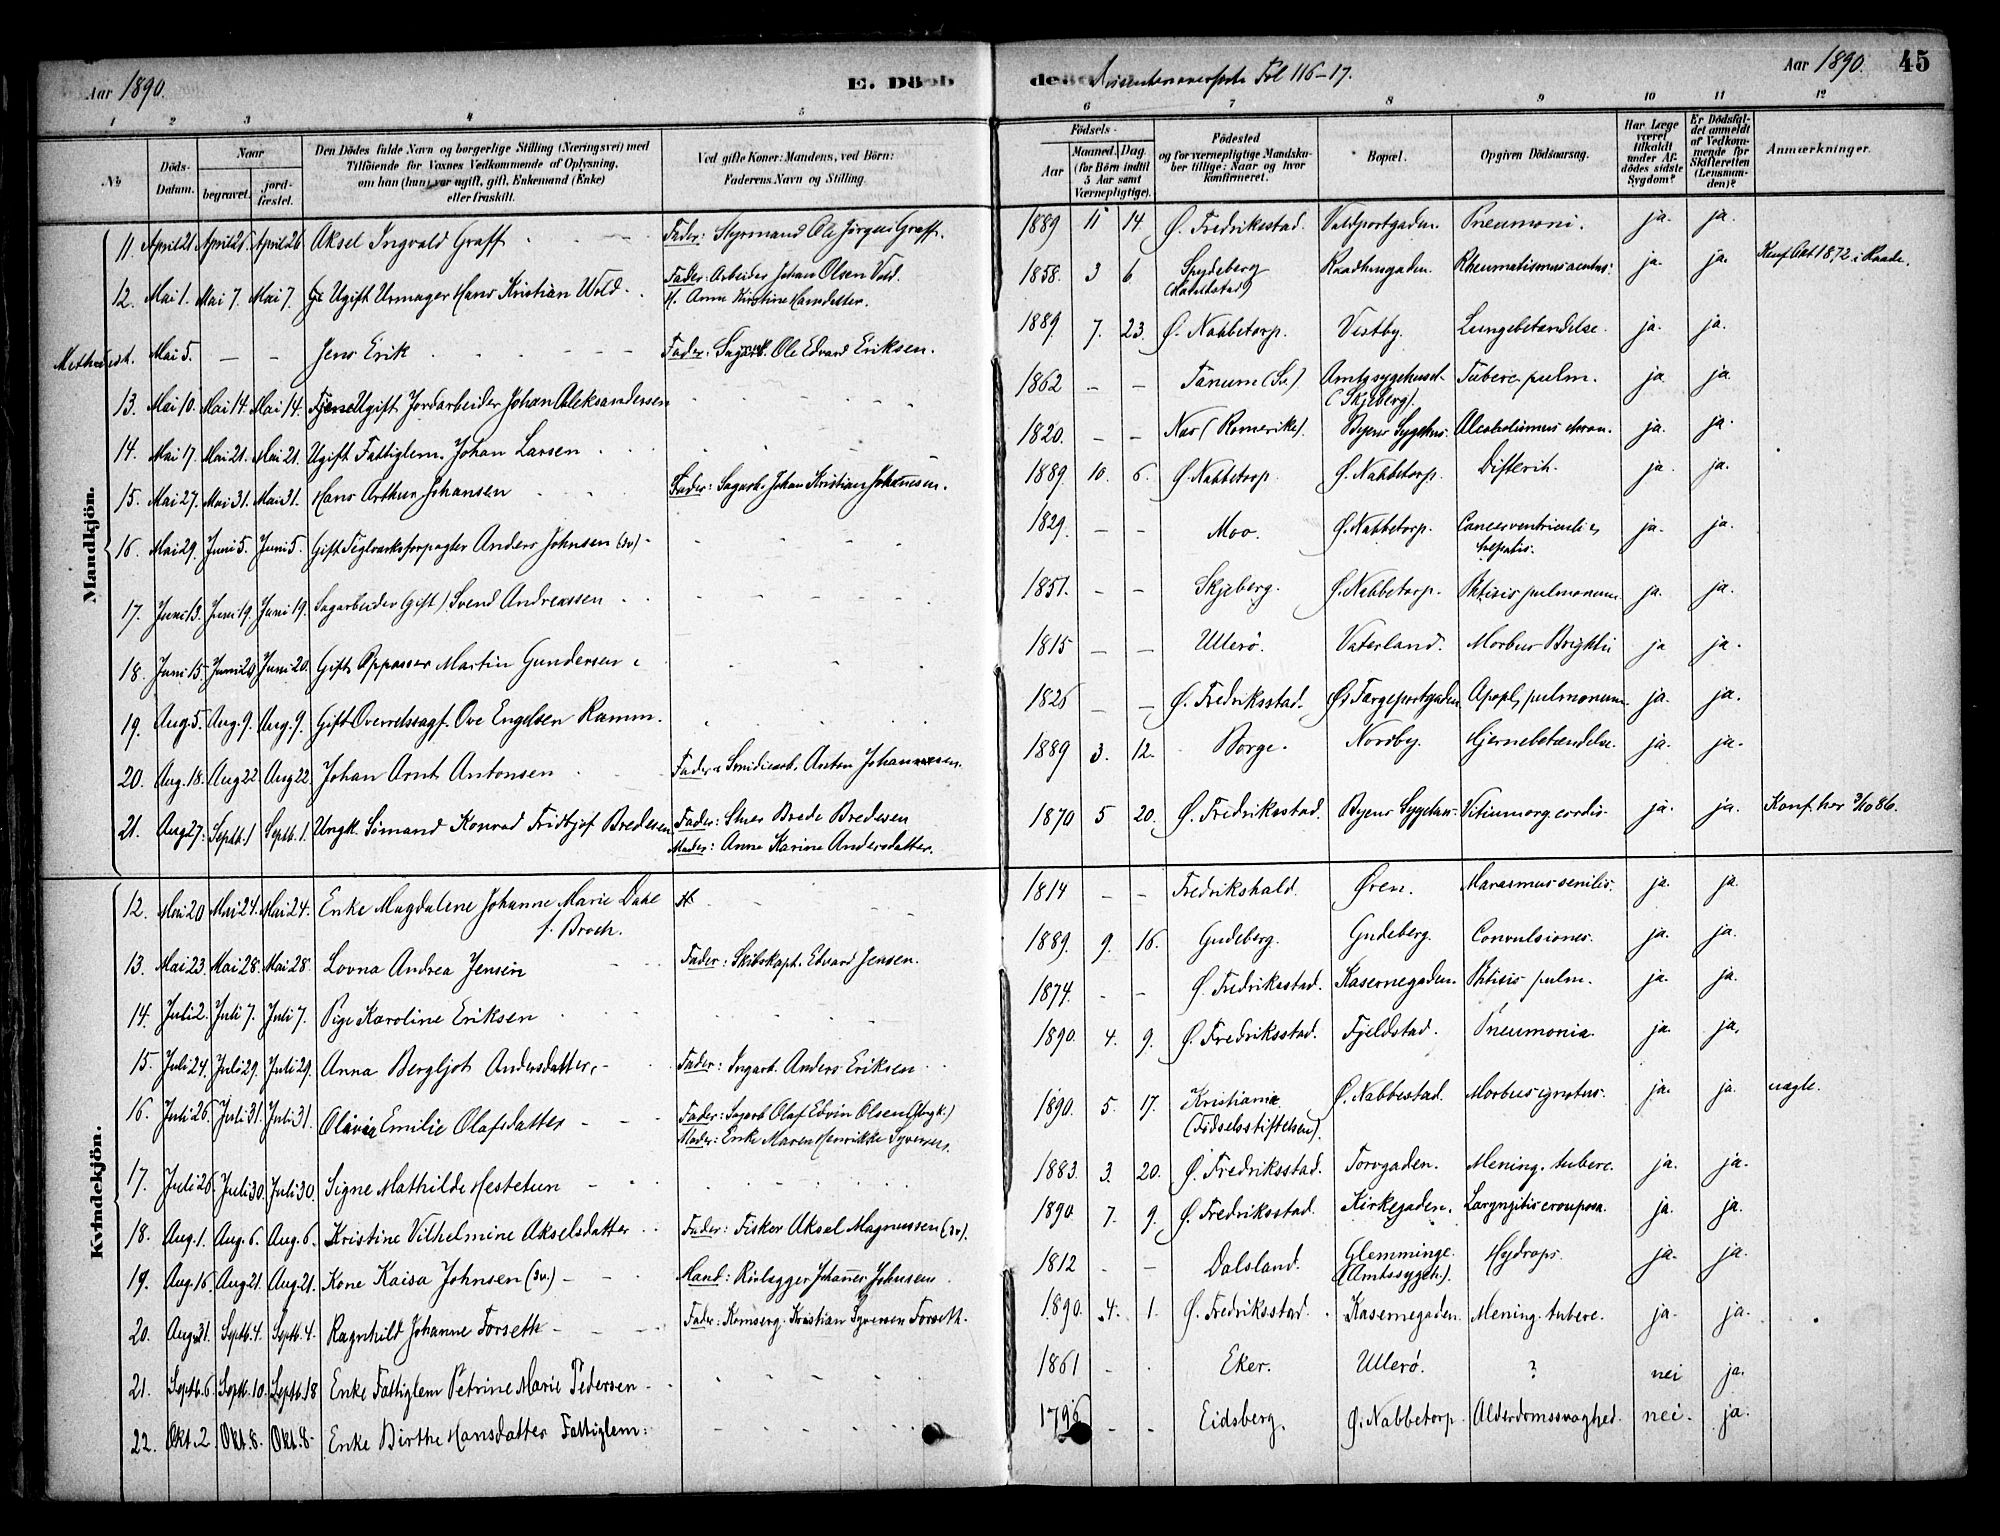 Aar 1890. E. Dö
de Fol 116-17. Aar 1890. 45
1 2 3 4 5 6 7 8 9 10 11 12
No
Döds-Datum.
Naar
begravet.
jord-fæstet.
Den Dödes fulde Navn og borgerlige Stilling (Næringsvei) med
Tilföiende for Voxnes Vedkommende af Oplysning,
om han (hun) var ugift, gift, Enkemand (Enke)
eller fraskilt.
Ved gifte Koner: Mandens, ved Börn:
Faderens Navn og Stilling.
Födsels-
Aar
Maaned. Dag
(for Börn indtil
5 Aar samt
Værnepligtige).
Födested
og for værnepligtige Mandska-
ber tillige: Naar og hvor
konfirmeret.
Bopæl.
Opgiven Dödsaarsag.
Har Læge
været
tilkaldt
under Af-
dödes sidste
Sygdom?
Er Dödsfal-
det anmeldt
af Vedkom-
mende for
Skifteretten
(Lensman-
den)?
Anmærkninger.
Mandkjön.
11. April 21 April 26 April 26 Aksel Ingvald Graff Fader: Styrmand Ole Jörgen Graff. 1889 11 14 Ø. Fredriksstad. Voldportgaden. Pneumoni. ja. ja.
12. Mai 1. Mai 7. Mai 7. Ugift Urmager Hans Kristian Wold. Fader: Arbeider Johan Olsen Vold. 1858. 3 6 Spydeberg Raadhusgaden. Rheumatismus acutus. ja. ja. Konf. Okt 1872 i Raade.
M. Anne Kirstine Hansdatter.
Mai 5. — — Jens Erik Fader: Sagarb. Ole Edvard Eriksen. 1889 7. 23 Ø. Nabbetorp. Vestby. Lungebetændelse. ja. ja.
13. Mai 10. Mai 14. Mai 14. Ugift Jordarbeider Johan Aleksandersen 1862 — — Tanum (Sv.) Amtssygehuset Tuberc. pulm. ja ja.
(Skjeberg).
14. Mai 17. Mai 21. Mai 21. Ugift Fattiglem. Johan Larsen 1820. — — Nas (Romerike). Byens Sygehus. Alcoholismus chron. ja. ja.
15. Mai 27. Mai 31. Mai 31. Hans Arthur Johansen Fader: Sagarb. Johan Kristian Johannesen. 1889 10. 6. Ø. Nabbetorp. Ø. Nabbetorp. Difterit. ja. ja.
16. Mai 29. Juni 5. Juni 5. Gift Teglværksforpagter Anders Johnsen (sv) 1829. — — Moo. Ø. Nabbetorp. Cancer ventriculi & ja. ja.
hepatis.
17. Juni 13. Juni 19. Juni 19. Sagarbeider (gift) Svend Andreassen 1851. — — Skjeberg. Ø. Nabbetorp. Phtisis pulmonum ja. ja.
18. Juni 15. Juni 20 Juni 20. Gift Oppasser Martin Gundersen 1815 — — Ullerö. Vaterland. Morbus Brightii ja ja.
19. Aug. 5. Aug. 9. Aug. 9. Gift Overretssagf. Ove Engelsen Ramm. 1826 — — Ø. Fredriksstad. Færgeportgaden Apopl. pulmonum ja. ja.
20. Aug. 18. Aug 22 Aug 22. Johan Arnt Antonsen Fader: Smediearb. Anton Johannesen. 1889 3. 12. Borge. Nordby. Hjernebetændelse. ja. ja.
21. Aug 27. Septb. 1 Septb. 1. Ungk. Sömand Konrad Fridtjof Bredesen Fader: Brede Bredesen 1870 5 20. Ø. Fredriksstad. Byens Sygehus. Vitium org. cordis. ja. ja. Konf. her 3/10 86.
Moder: Anne Karine Andersdatter.
Kvindekjön.
12. Mai 20 Mai 24. Mai 24. Enke Magdalene Johanne Marie Dahl 1814 — — Fredrikshald. Øren. Marasmus senilis. ja. ja.
f. Broch.
13. Mai 23. Mai 28. Mai 28. Lovna Andrea Jensen Fader: Skibskapt. Edvard Jensen. 1889. 9. 16. Gudeberg. Gudeberg. Convulsiones. ja. ja.
14. Juli 2. Juli 7. Juli 7. Pige Karoline Eriksen 1874. — — Ø. Fredriksstad. Kasernegaden. Phtisis pulm. ja. ja.
15. Juli 24. Juli 29. Juli 29. Anna Bergljot Andersdatter. Fader: Anders Eriksen 1890. 4. 9. Ø. Fredriksstad. Fjeldstad. Pneumonia. ja. ja.
16. Juli 26. Juli 31. Juli 31. Olivia Emilie Olafsdatter Fader: Sagarb. Olaf Edvin Olsen (Ungk.) 1890. 5. 17. Kristiania. Ø. Nabbestad. Morbus ignotus. ja. ja. uægte.
Moder: Enke Maren Henrikke Syversen. (Fødselsstiftelsen).
17. Juli 26. Juli 30. Juli 30. Signe Mathilde Hestetun 1883. 3. 20. Ø. Fredriksstad. Torvgaden. Mening. tuberc. ja. ja.
18. Aug. 1. Aug. 6. Aug. 6. Kristine Vilhelmine Akselsdatter Fader: Fisker Aksel Magnussen (sv). 1890. 7. 9. Ø. Fredriksstad. Kirkegaden. Laryngitis crouposa. ja. ja.
19. Aug. 16. Aug 21. Aug. 21. Kone Kaisa Johnsen (sv.) Mand: Johannes Johnsen 1812 — — Dalsland. Glemminge. Hydrops. ja. ja.
(Amtssygeh.).
20. Aug. 31. Septb. 4. Septb. 4. Ragnhild Johanne Forseth Fader: Kristian Syversen Forseth. 1890. 4. 1. Ø. Fredriksstad. Kasernegaden. Mening. tuberc. ja. ja.
21. Septb. 6. Septb. 10. Septb. 18 Enke Fattiglem Petrine Marie Pedersen 1861 — . Eker. Ullerö. ? nei ja.
22. Okt. 2. Okt. 8. Okt. 8. Enke Birthe Hansdatter Fattiglem. 1796 — — Eidsberg. Ø. Nabbetorp. Alderdomssvaghed. nei. ja.